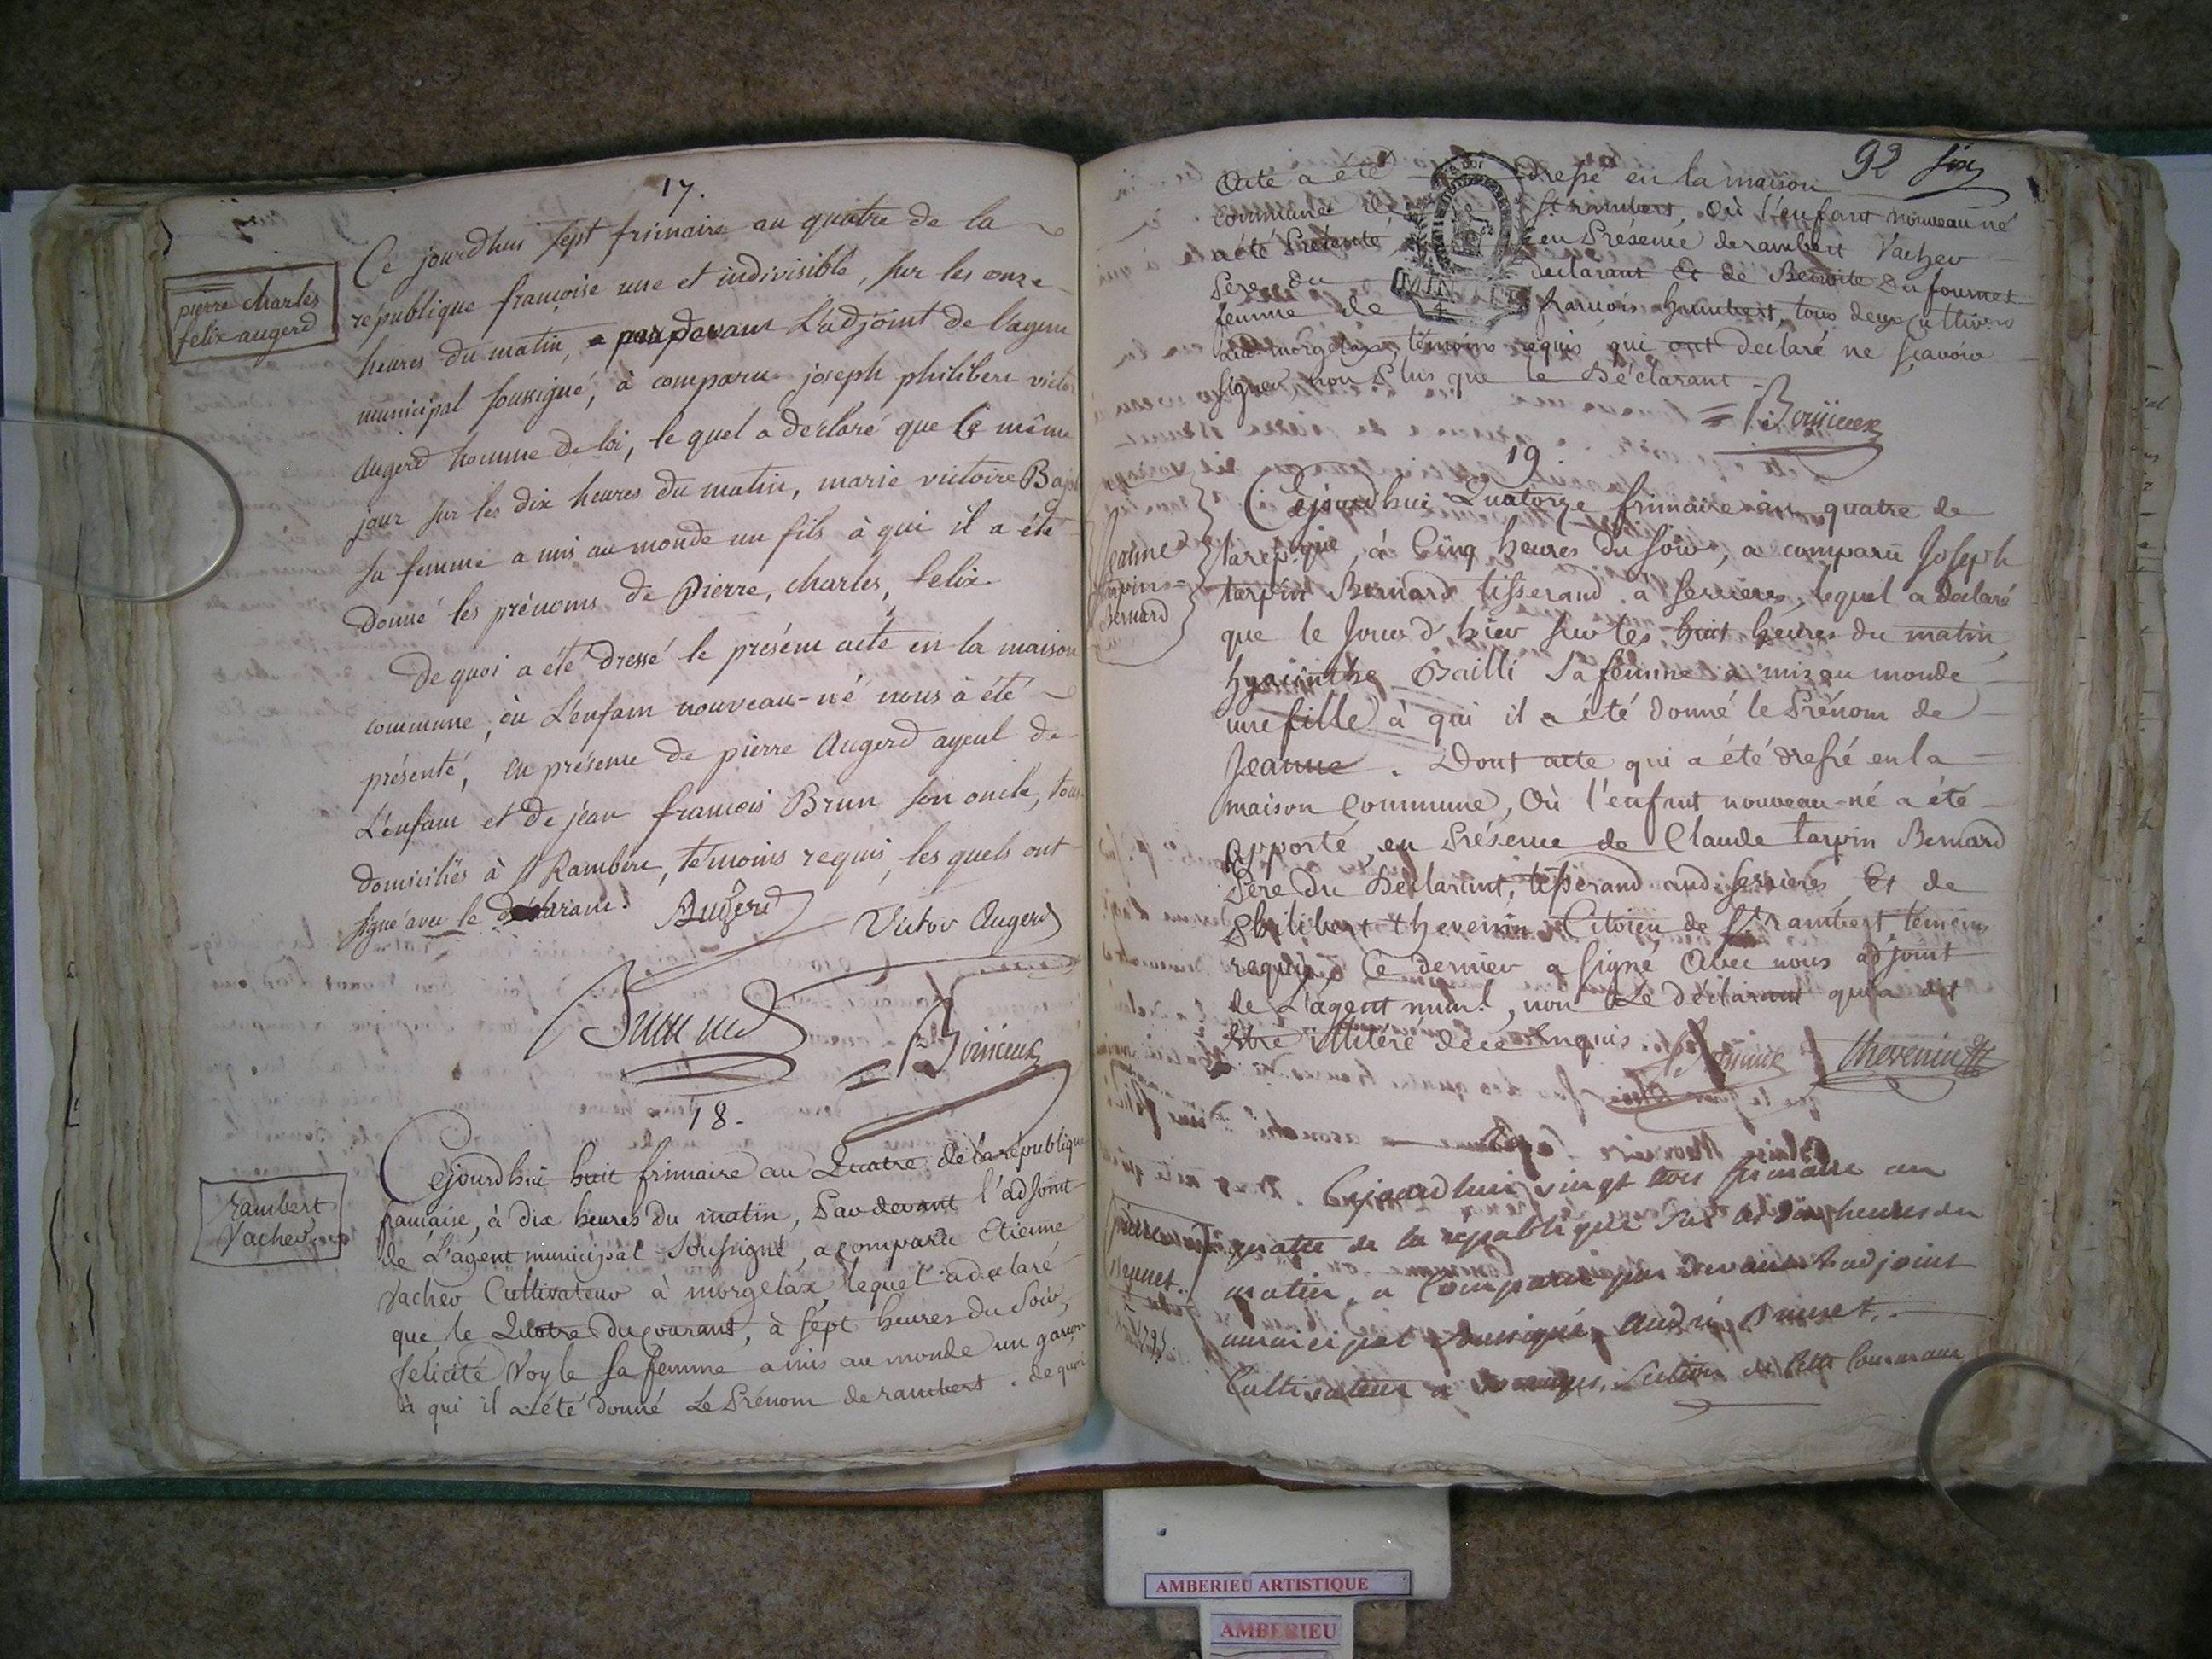 17.
Ce jourdhui sept frimaire an quatre de la
république françoise une et indivisible, sur les onze
heures du matin, pardevant L'adjoint de l'agent
municipal soussigné, à comparu joseph philibert victor
Augerd homme de loi, le quel a declaré que le même
jour sur les dix heures du matin, marie victoire
sa femme a mis au monde un fils à qui il a été
donné les prénoms de Pierre, charles, felix.
De quoi a été dressé le présent acte en la maison
commune, où L'enfant nouveau-né nous à été
présenté, en présence de pierre Augerd ayeul de
L'enfant et de jean françois Brun son oncle, tous
domiciliés à St Rambert, témoins requis, les quels ont
signé avec le déclarant.
Augerd
Victor Augerd
pierre charles
felix augerd
18.
Cejourdhui huit frimaire an Quatre de la république
francaise, à dix heures du matin, Pardevant l'adjoint
de L'agent municipal Soussigné, a comparu Etienne
Vacher Cultivateur à morgelax, lequel a declaré
que le Quatre du courant, à sept heures du Soir,
felicité Voyle sa femme a mis au monde un garçon
à qui il a été donné Le Prénom de rambert. de quoi
rambert
Vacher
92 six
acte a été dressé en la maison
commune de St. rambert, Où l'enfant nouveau né
a été Présenté en Présence de rambert Vacher
Père du declarant Et de Benoite Dufournet
femme de françois humbert, tous deux
témoins requis qui ont declaré ne sçavoir
signer non Plus que le Déclarant
19.
Cejourdhui Quatorze frimaire an quatre de
la rep.que, à Cinq heures du soir, a comparu Joseph
tarpin Bernard tisserand à Serrières, lequel a declaré
que le Jour d'hier sur les huit heures du matin,
hyacinthe Bailli Sa femme a mis au monde
une fille à qui il a été donné le Prénom de
Jeanne. Dont acte qui a été dressé en la
maison commune, Où l'enfant nouveau-né a été
apporté, en Présence de Claude tarpin Bernard
Père du Déclarant, tisserand aud. serrières, Et de
Philibert thevenin Citoien de St rambert, témoins
requis, Ce dernier a signé Avec nous adjoint
de L'agent mun.l, non Le déclarant qui a dit
être illitéré de ce Enquis.
thevenin
Jeanne
tarpin
Bernard
Cejourdhui vingt trois frimaire an
quatre de la republique sur les dix heures du
matin, a comparu par devant L'adjoint
municipal soussigné, andré
Cultivateur a section de cette Commune
AMBERIEU ARTISTIQUE
AMBERIEU